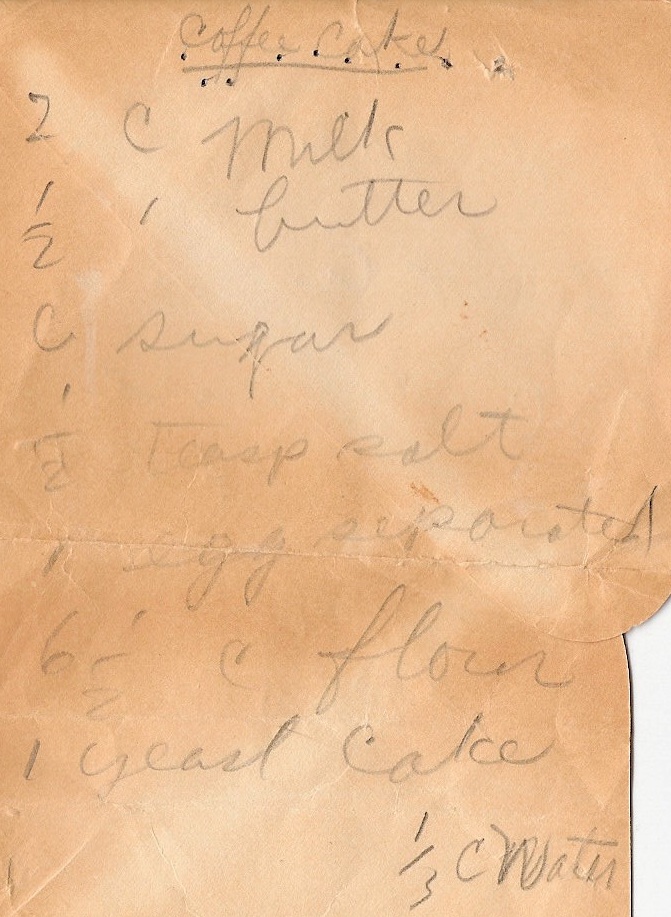 Coffee Cake
2 C Milk
1/2 ' butter
C sugar
1/2 Teasp salt
1 egg separated
6 1/2 C flour
1 yeast Cake
1/3 C Water